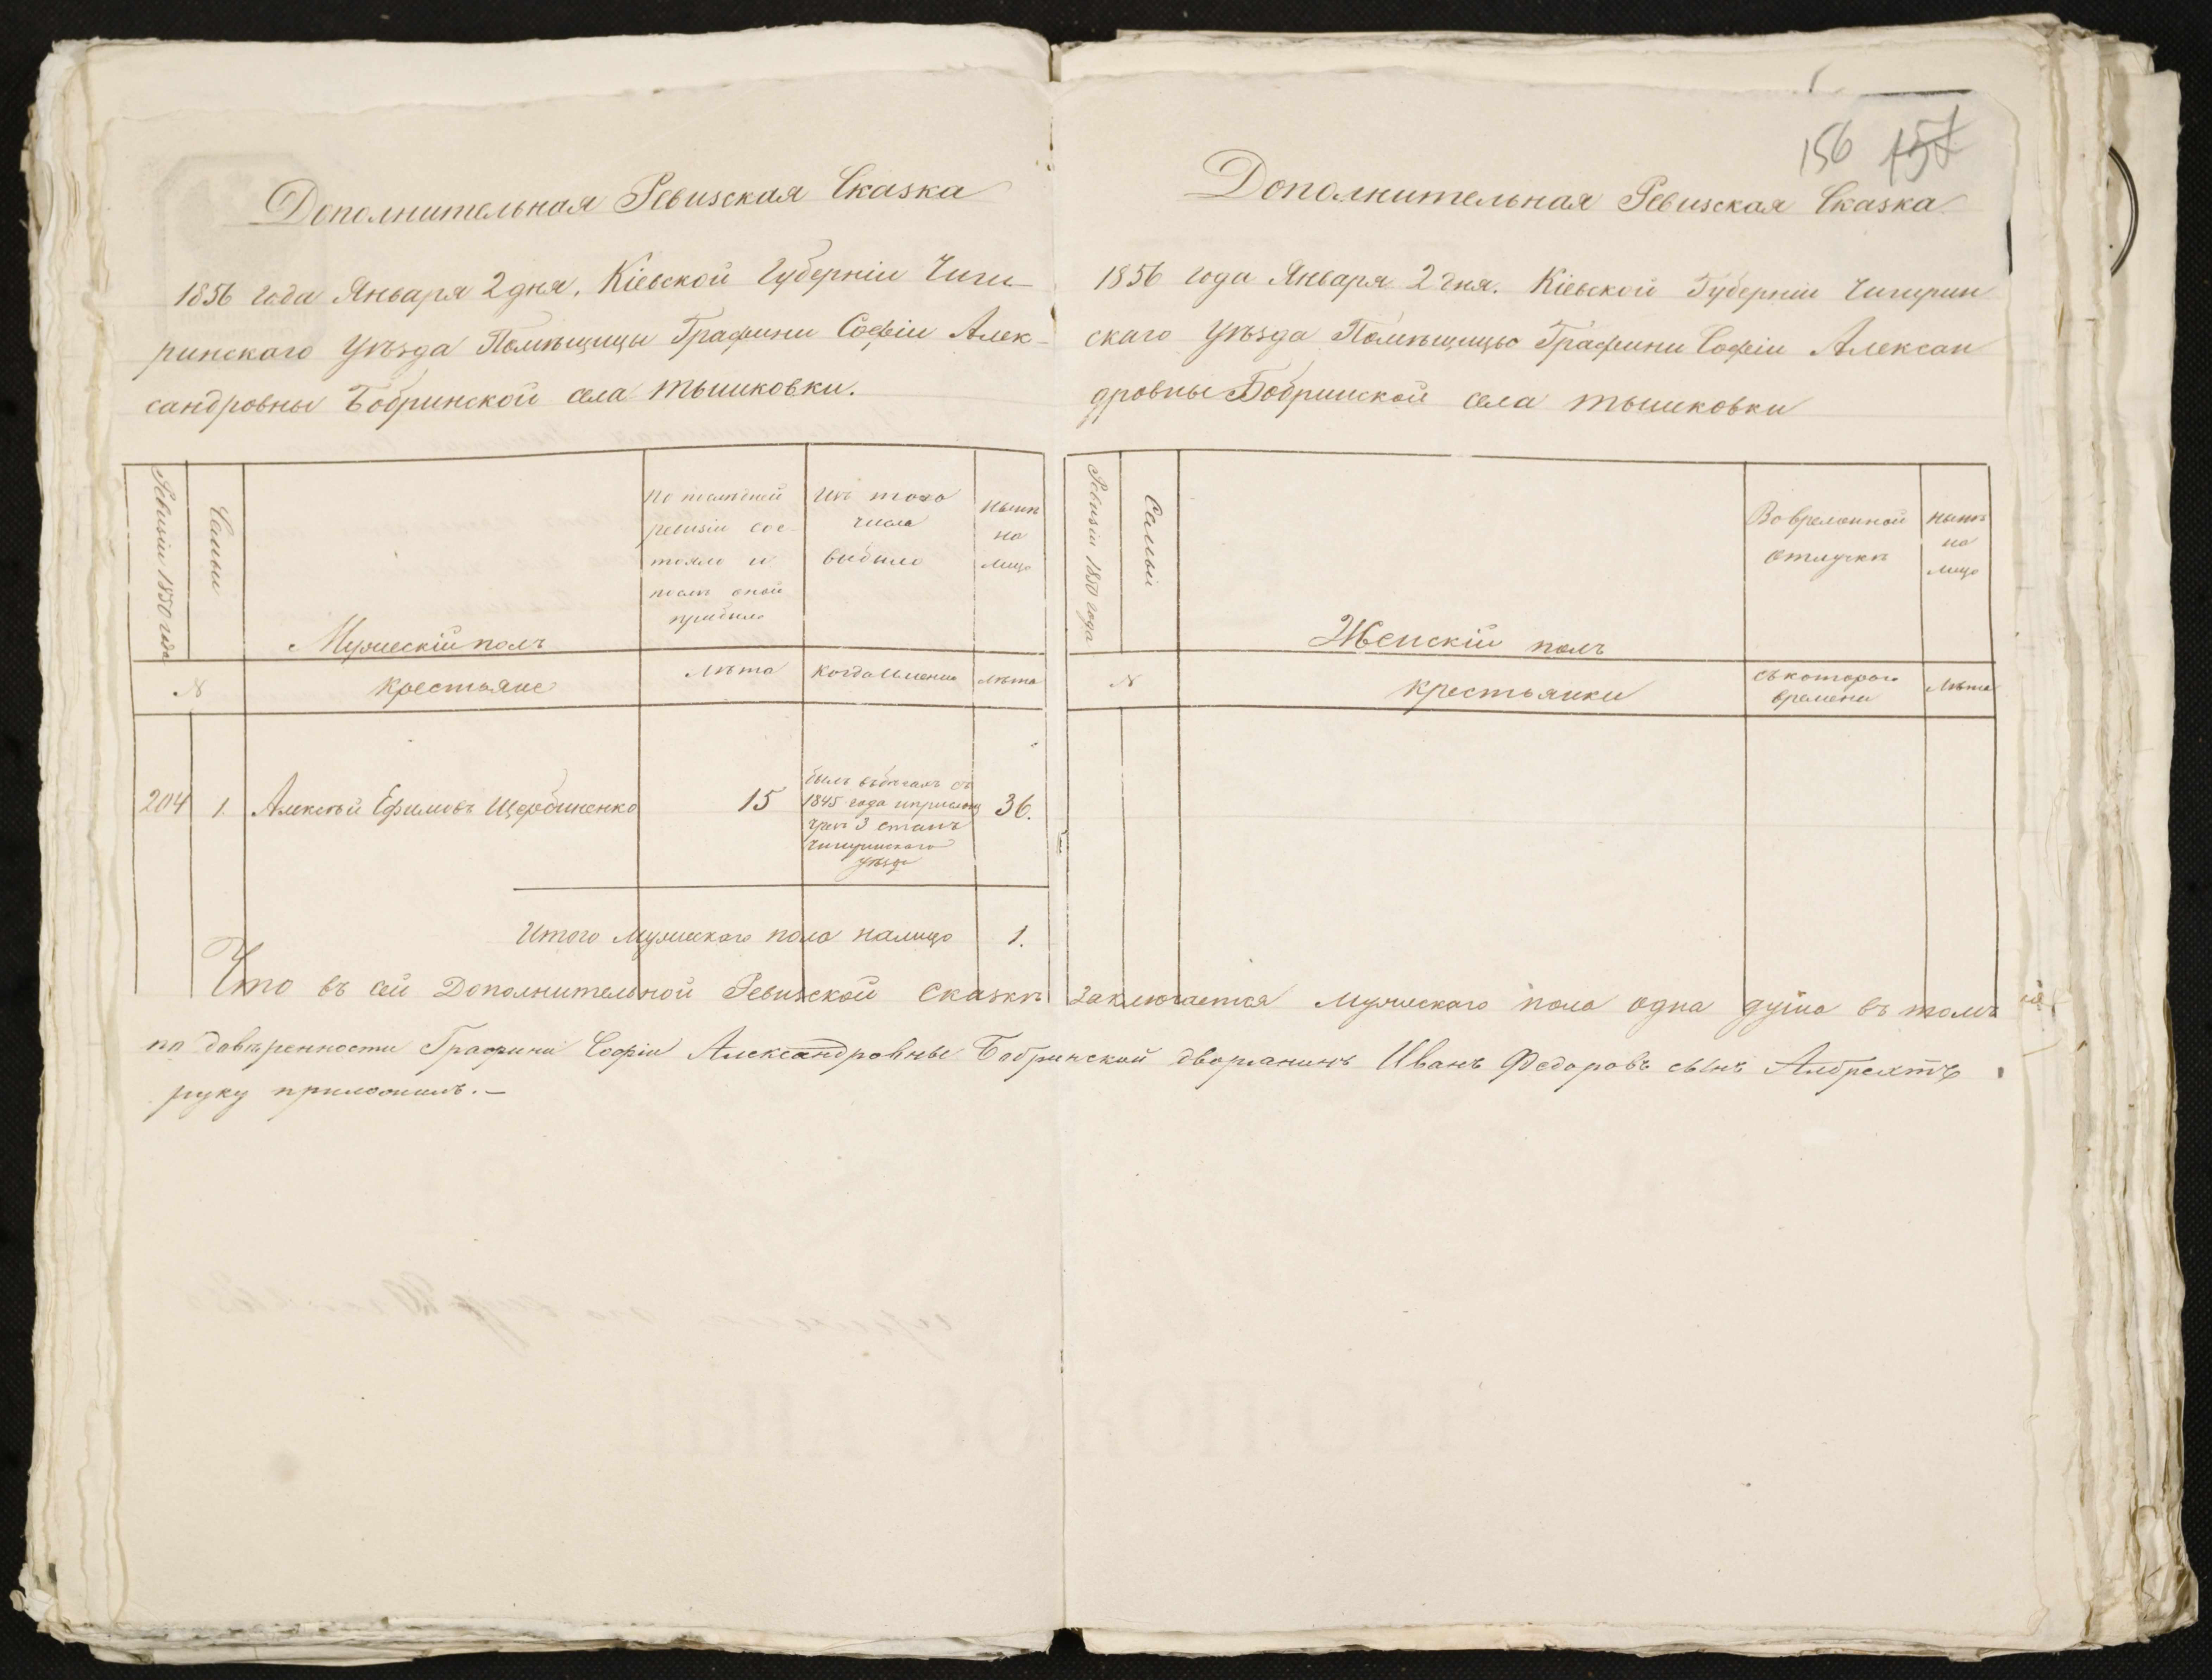 156 157
Дополнительная Ревизская Сказка
1856 года Января 2 дня. Кіевской Губерніи Чиги-
ринскаго Уѣзда Помѣщицы Графини Софіи Алек-
сандровны Бобринской села Тышковки.
Ревизіи 1850 года
Самьи
Мужескій полъ
По последней
ревизіи сос-
тояло и
посль оной
прибыло
Изъ того
числа
выбыло
Нынѣ
на
лицо
№
Крестьяне
Лѣта
Когда именно
Лѣта
204 1. Алексѣй Ефимовъ Щербиненко 15
былъ въ бѣгахъ съ
1845 года
чрез 3 станъ
Чигиринскаго
уѣзда
36.
Итого Мужескаго пола налицо 1.
Дополнительная Ревизская Сказка
1856 года Января 2 дня. Кіевской Губерніи Чигирин
скаго Уѣзда Помѣщицы Графини Софіи Алексан
дровны Бобринской села Тышковки
Ревизіи 1850 года
Самьи
Женскій полъ
Во временной
отлучкѣ
Нынѣ
на
лицо
№
Крестьянки
Съ котораго
времени
Лѣта
Что въ сей Дополнительной Ревизской Сказкѣ заключается мужескаго пола одна душа въ томъ
по довѣренности Графини Софіи Александровны Бобринской дворянинъ Иванъ Федоровъ сынъ Албрехтъ
руку приложилъ.-